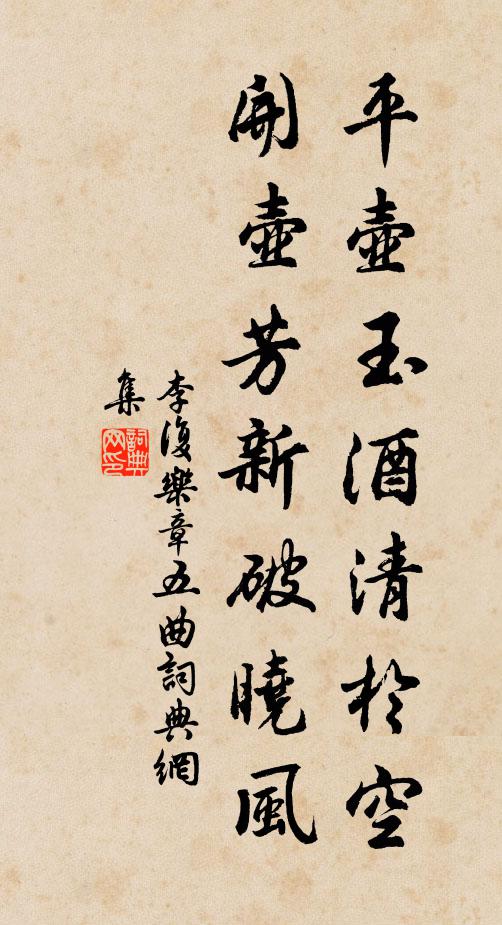 平壺玉酒清於空
開壺芳新破曉風
李復樂章五曲詞典網
集
詞典
網印